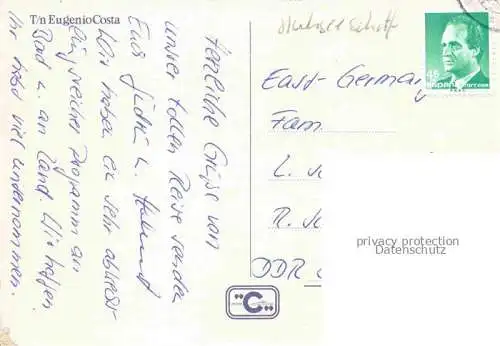 T/n EugenioCosta
Herzliche Grüße von
unser tollen Reise senden
Euch
Wir haben ein sehr abwechs-
lungsreiches Programm an
Bord u. an Land. Wir hoffen
Ihr habt viel unternommen.
45
España
East-Germany
Fam.
L.
R.
DDR
C
privacy protection
Datenschutz